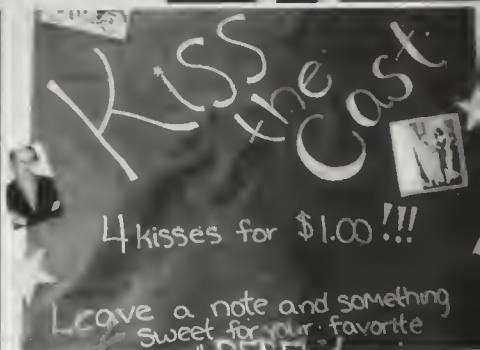 Kiss
the
Cast
4 kisses for $1.00 !!!
Leave a note and something
sweet for your favorite